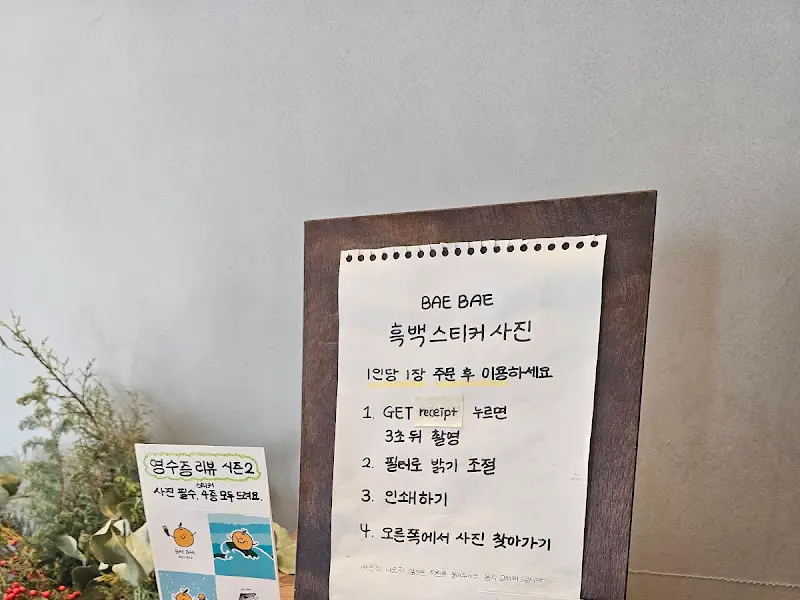 BAE BAE
흑백 스티커 사진
1인당 1장 주문 후 이용하세요
1. GET receipt 누르면
3초 뒤 촬영
2. 필터로 밝기 조절
3. 인쇄하기
4. 오른쪽에서 사진 찾아가기
영수증 리뷰 시즌2
스티커
사진 필수, 4종 모두 드려요.
BAE BAE